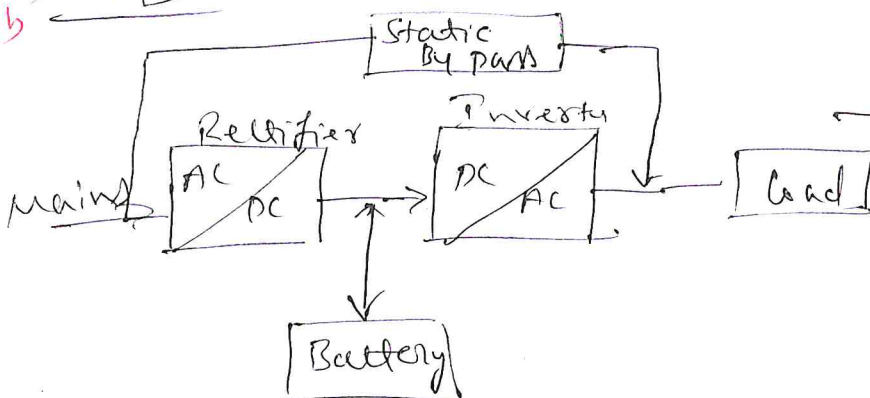 b
Static
By pass
Rectifier
Inverter
Mains
AC
DC
DC
AC
Load
Battery